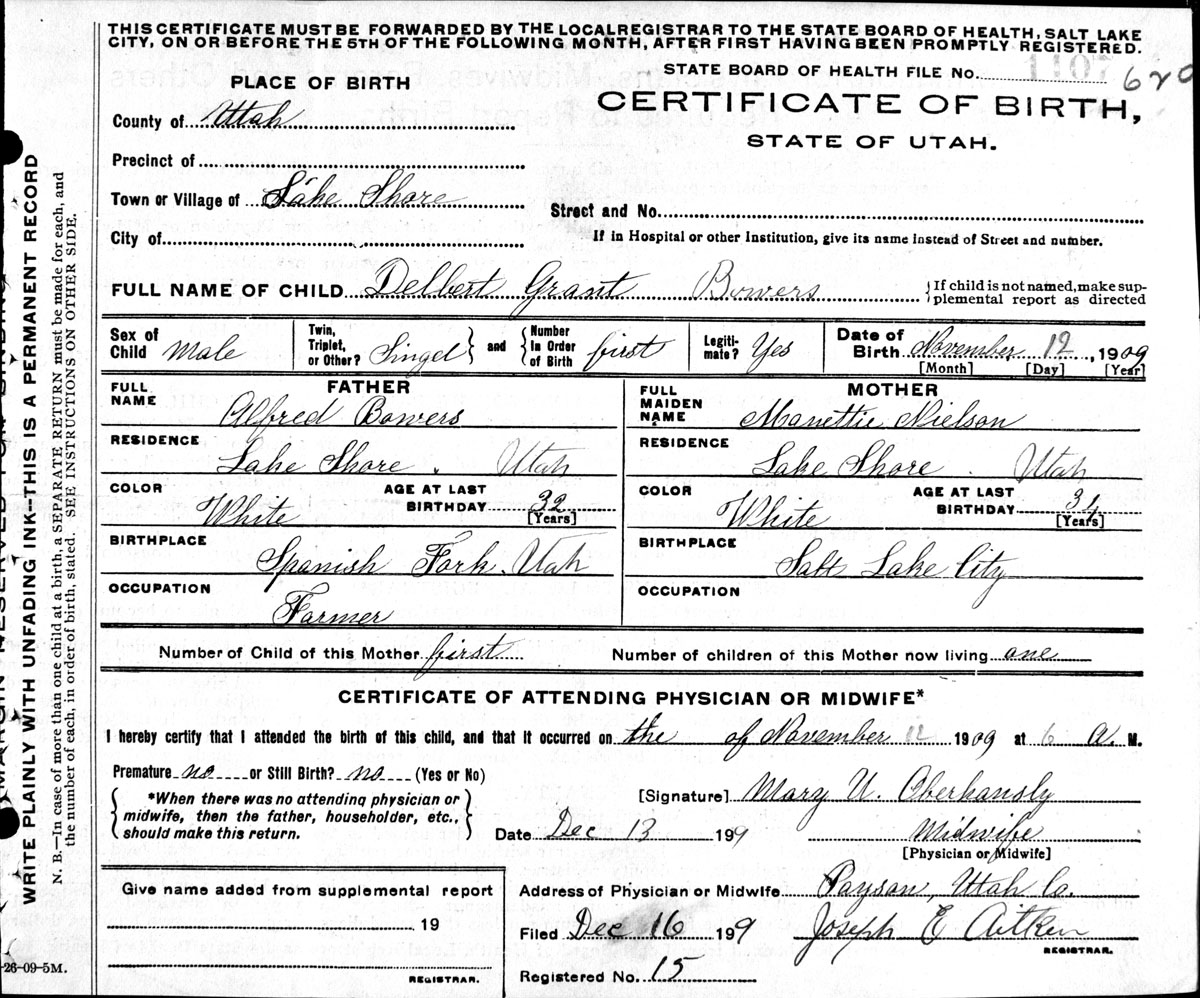 THIS CERTIFICATE MUST BE FORWARDED BY THE LOCAL REGISTRAR TO THE STATE BOARD OF HEALTH, SALT LAKE
CITY, ON OR BEFORE THE 5TH OF THE FOLLOWING MONTH, AFTER FIRST HAVING BEEN PROMPTLY REGISTERED.
STATE BOARD OF HEALTH FILE No. 1107 620
PLACE OF BIRTH
CERTIFICATE OF BIRTH,
STATE OF UTAH.
County of Utah
Precinct of
Town or Village of Lake Shore
Street and No.
City of
If in Hospital or other Institution, give its name instead of Street and number.
FULL NAME OF CHILD Delbert Grant Bowers {If child is not named, make sup-
plemental report as directed
Sex of Child Male
Twin, Triplet, or Other? Singel } and { Number In Order of Birth first
Legiti- mate? Yes
Date of Birth November 12, 1909
[Month] [Day] [Year]
FATHER
FULL NAME Alfred Bowers
RESIDENCE Lake Shore. Utah
COLOR White AGE AT LAST BIRTHDAY 32 [Years]
BIRTHPLACE Spanish Fork. Utah
OCCUPATION Farmer
MOTHER
FULL MAIDEN NAME Manettie Nielson
RESIDENCE Lake Shore. Utah
COLOR White AGE AT LAST BIRTHDAY [Years]
BIRTHPLACE Salt Lake City
OCCUPATION
Number of Child of this Mother first Number of children of this Mother now living one
CERTIFICATE OF ATTENDING PHYSICIAN OR MIDWIFE*
I hereby certify that I attended the birth of this child, and that it occurred on the of November 12 1909 at 6 a. M.
Premature no or Still Birth? no (Yes or No)
{*When there was no attending physician or
midwife, then the father, householder, etc.,
should make this return.}
[Signature] Mary U. Oberhansly
Date Dec 13 199 Midwife
[Physician or Midwife]
Give name added from supplemental report
19
REGISTRAR.
Address of Physician or Midwife Payson, Utah Co.
Filed Dec 16 199 Joseph E Aitken
REGISTRAR.
Registered No. 15
-26-09-5M.
MARGIN RESERVED FOR BINDING
WRITE PLAINLY WITH UNFADING INK—THIS IS A PERMANENT RECORD
N. B.—In case of more than one child at a birth, a SEPARATE RETURN must be made for each, and
the number of each, in order of birth, stated. SEE INSTRUCTIONS ON OTHER SIDE.